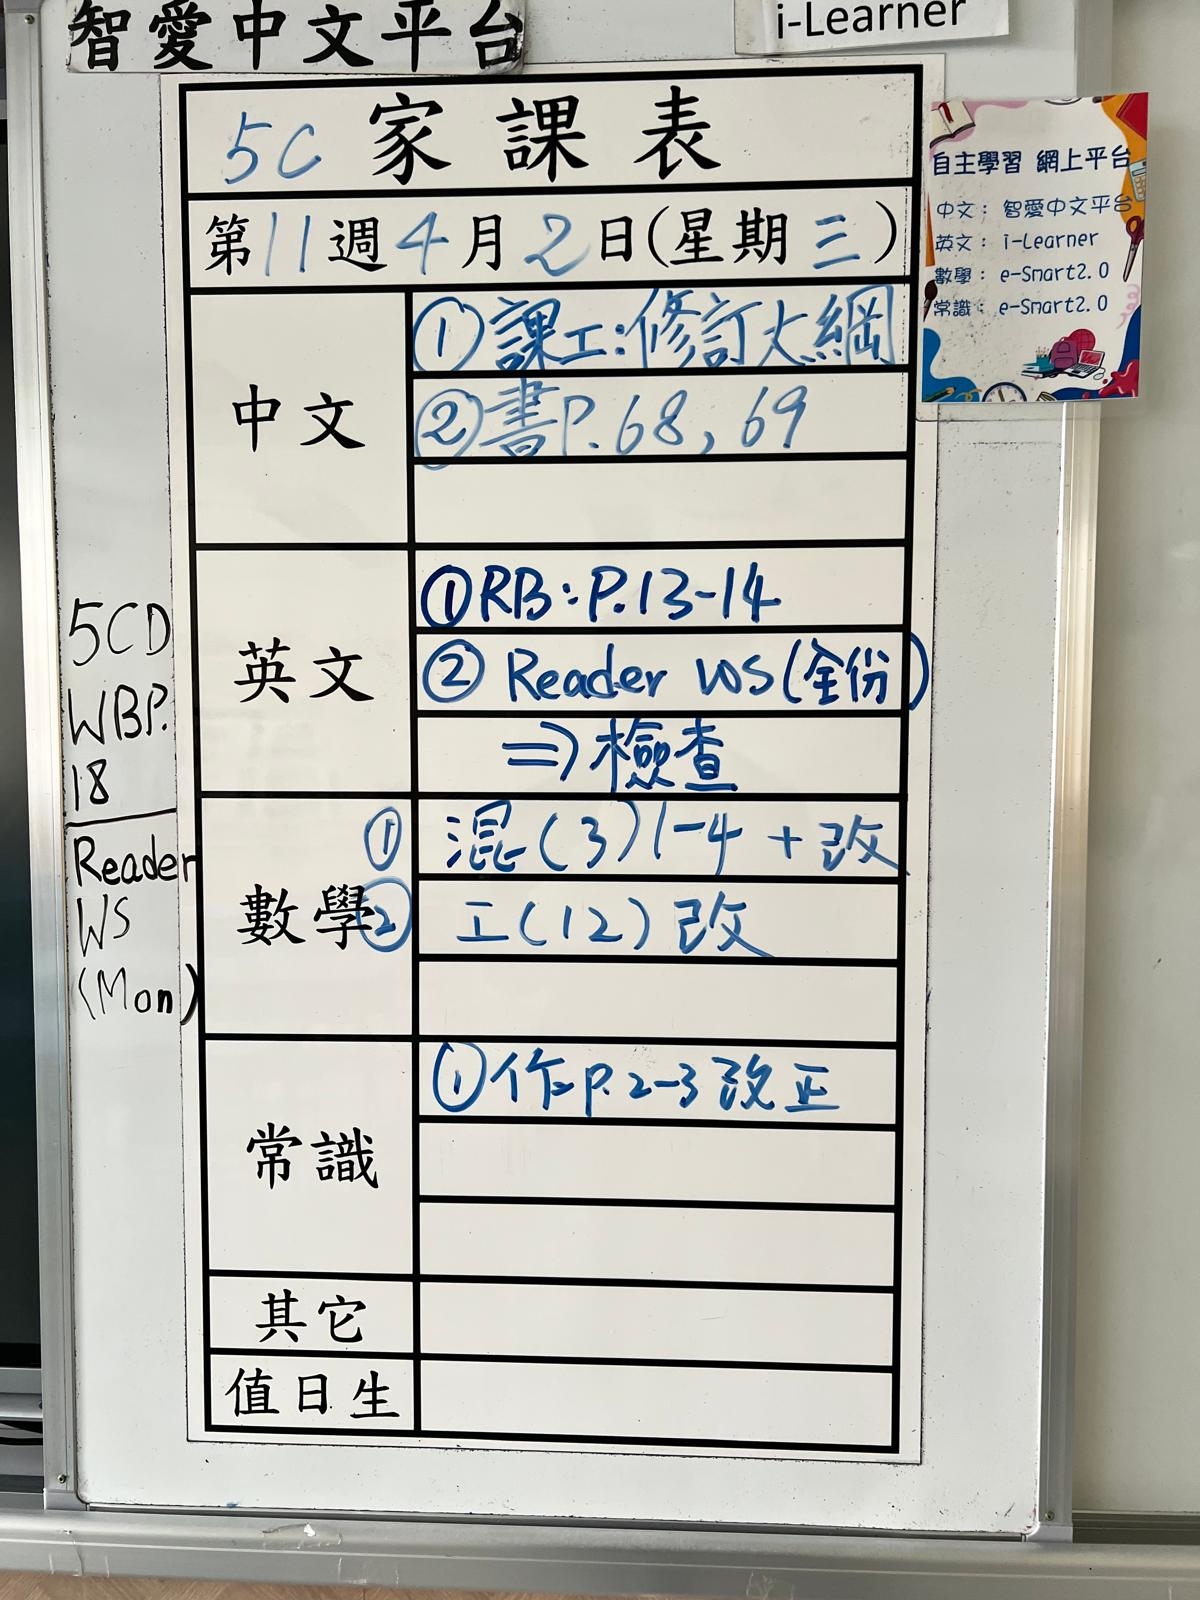 智愛中文平台
i-Learner
5C 家課表
第11週4月2日(星期三)
自主學習 網上平台
中文： 智愛中文平台
英文： i-Learner
數學： e-Smart2.0
常識： e-Smart2.0
中文
①課工:修訂大綱
②書P.68, 69
英文
①RB:P.13-14
② Reader WS(全份)
⇒檢查
數學
① 混(3)1-4 + 改
② 工(12)改
常識
①作P.2-3改正
其它
值日生
5CD
WBP.
18
Reader
WS
(Mon)